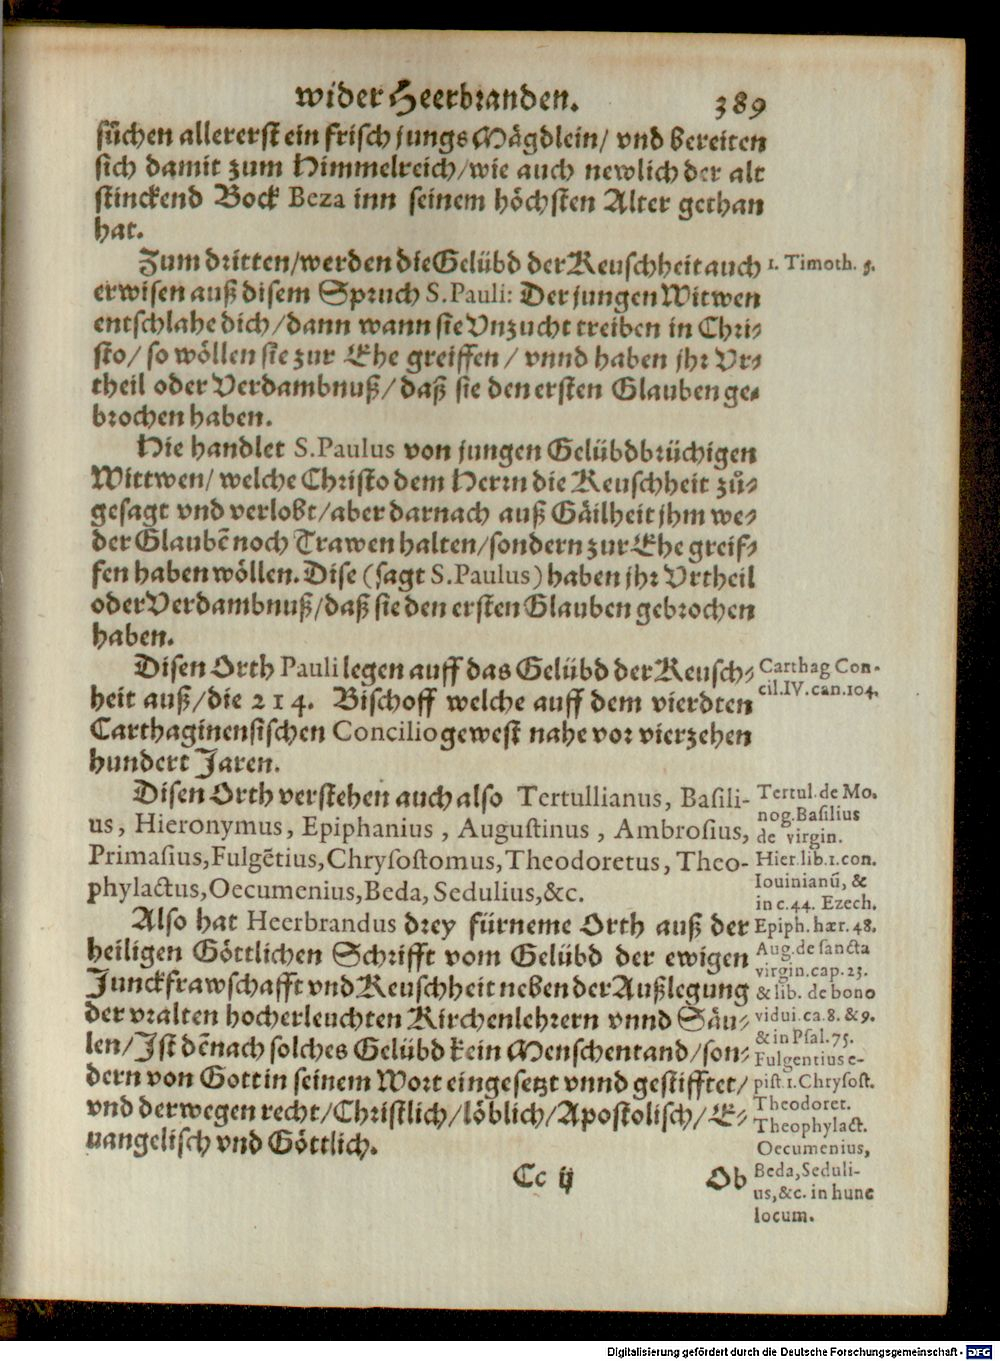 wider Heerbranden. 389
suͤchen allererst ein frisch jungs Maͤgdlein/ vnd bereiten
sich damit zum Himmelreich/ wie auch newlich der alt
stinckend Bock Beza inn seinem hoͤchsten Alter gethan
hat.
Zum dritten/ werden die Geluͤbd der Keuschheit auch
erwisen auß disem Spruch S. Pauli: Der jungen Witwen
entschlahe dich/ dann wann sie Vnzucht treiben in Chri-
sto/ so woͤllen sie zur Ehe greiffen/ vnnd haben jhr Vr-
theil oder Verdambnuß/ daß sie den ersten Glauben ge-
brochen haben.
1. Timoth. 5.
Hie handlet S. Paulus von jungen Geluͤbdbruͤchigen
Wittwen/ welche Christo dem Herrn die Keuschheit zuͦ-
gesagt vnd verlobt/ aber darnach auß Gaͤilheit jhm we-
der Glaubẽ noch Trawen halten/ sondern zur Ehe greif-
fen haben woͤllen. Dise (sagt S. Paulus) haben jhr Vrtheil
oder Verdambnuß/ daß sie den ersten Glauben gebrochen
haben.
Disen Orth Pauli legen auff das Geluͤbd der Keusch-
heit auß/ die 214. Bischoff welche auff dem vierdten
Carthaginensischen Concilio gewest nahe vor vierzehen
hundert Jaren.
Carthag Con-
cil. IV. can. 104.
Disen Orth verstehen auch also Tertullianus, Basili-
us, Hieronymus, Epiphanius, Augustinus, Ambrosius,
Primasius, Fulgẽtius, Chrysostomus, Theodoretus, Theo-
phylactus, Oecumenius, Beda, Sedulius, &c.
Also hat Heerbrandus drey fuͤrneme Orth auß der
heiligen Goͤttlichen Schrifft vom Geluͤbd der ewigen
Junckfrawschafft vnd Keuschheit neben der Außlegung
der vralten hocherleuchten Kirchenlehrern vnnd Saͤu-
len/ Ist dẽnach solches Geluͤbd kein Menschentand/ son-
dern von Gott in seinem Wort eingesetzt vnnd gestifftet/
vnd derwegen recht/ Christlich/ loͤblich/ Apostolisch/ E-
uangelisch vnd Goͤttlich.
Tertul. de Mo.
nog. Basilius
de virgin.
Hier. lib. 1. con.
Iouinianũ, &
in c. 44. Ezech.
Epiph. hær. 48.
Aug. de sancta
virgin. cap. 23.
& lib. de bono
vidui. ca. 8. & 9.
& in Psal. 75.
Fulgentius e-
pist. 1. Chrysost.
Theodoret.
Theophylact.
Oecumenius,
Beda, Seduli-
us, &c. in hunc
locum.
Cc ij Ob
Digitalisierung gefördert durch die Deutsche Forschungsgemeinschaft - DFG